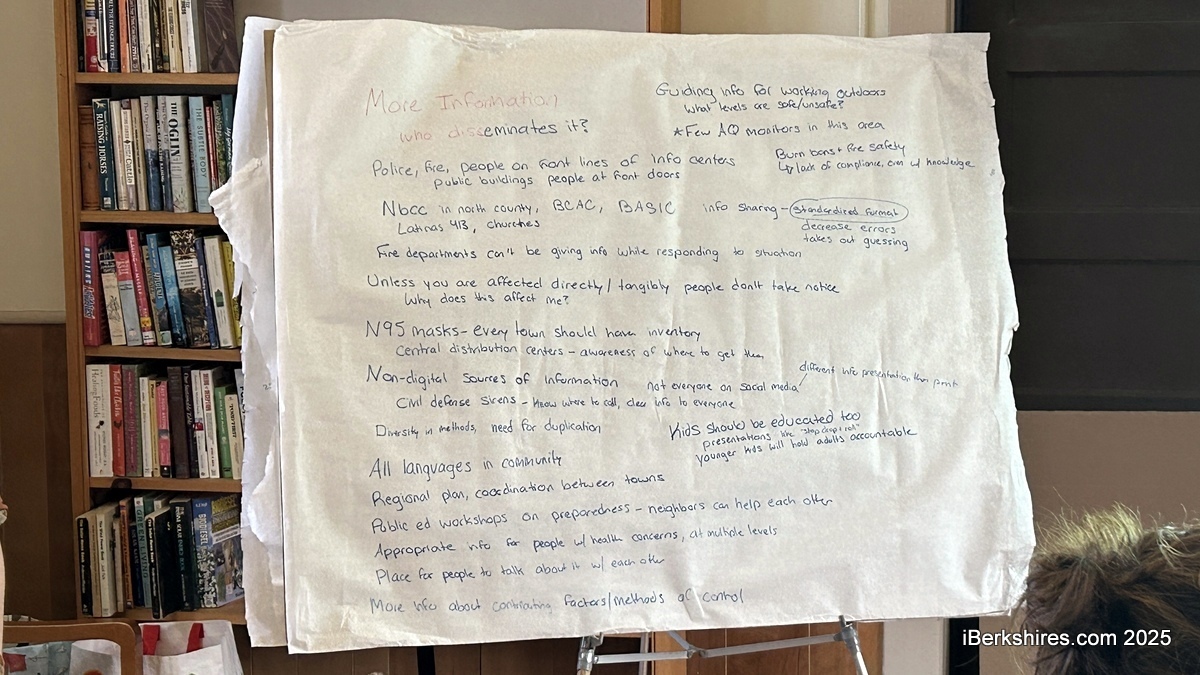 More Information
who disseminates it?
Police, fire, people on front lines of info centers
public buildings people at front doors
Nbcc in north county, BCAC, BASIC
Latinas 413, churches
info sharing - standardized format
decrease errors
takes out guessing
Fire departments can't be giving info while responding to situation
Unless you are affected directly/tangibly people don't take notice
Why does this affect me?
N95 masks - every town should have inventory
Central distribution centers - awareness of where to get them
Non-digital sources of information
not everyone on social media
different info presentation than print
Civil defense sirens - know where to call, clear info to everyone
Diversity in methods, need for duplication
Kids should be educated too
presentations like "stop drop + roll"
younger kids will hold adults accountable
All languages in community
Regional plan, coordination between towns
Public ed workshops on preparedness - neighbors can help each other
Appropriate info for people w/ health concerns, at multiple levels
Place for people to talk about it w/ each other
More info about contributing factors/methods of control
Guiding info for working outdoors
what levels are safe/unsafe?
*Few AQ monitors in this area
Burn bans + fire safety
↳ lack of compliance, even w/ knowledge
RAISING HORSES
THE OGLIN
THE SUBTLE BODY
Healing Foods
BIODIESEL
iBerkshires.com 2025